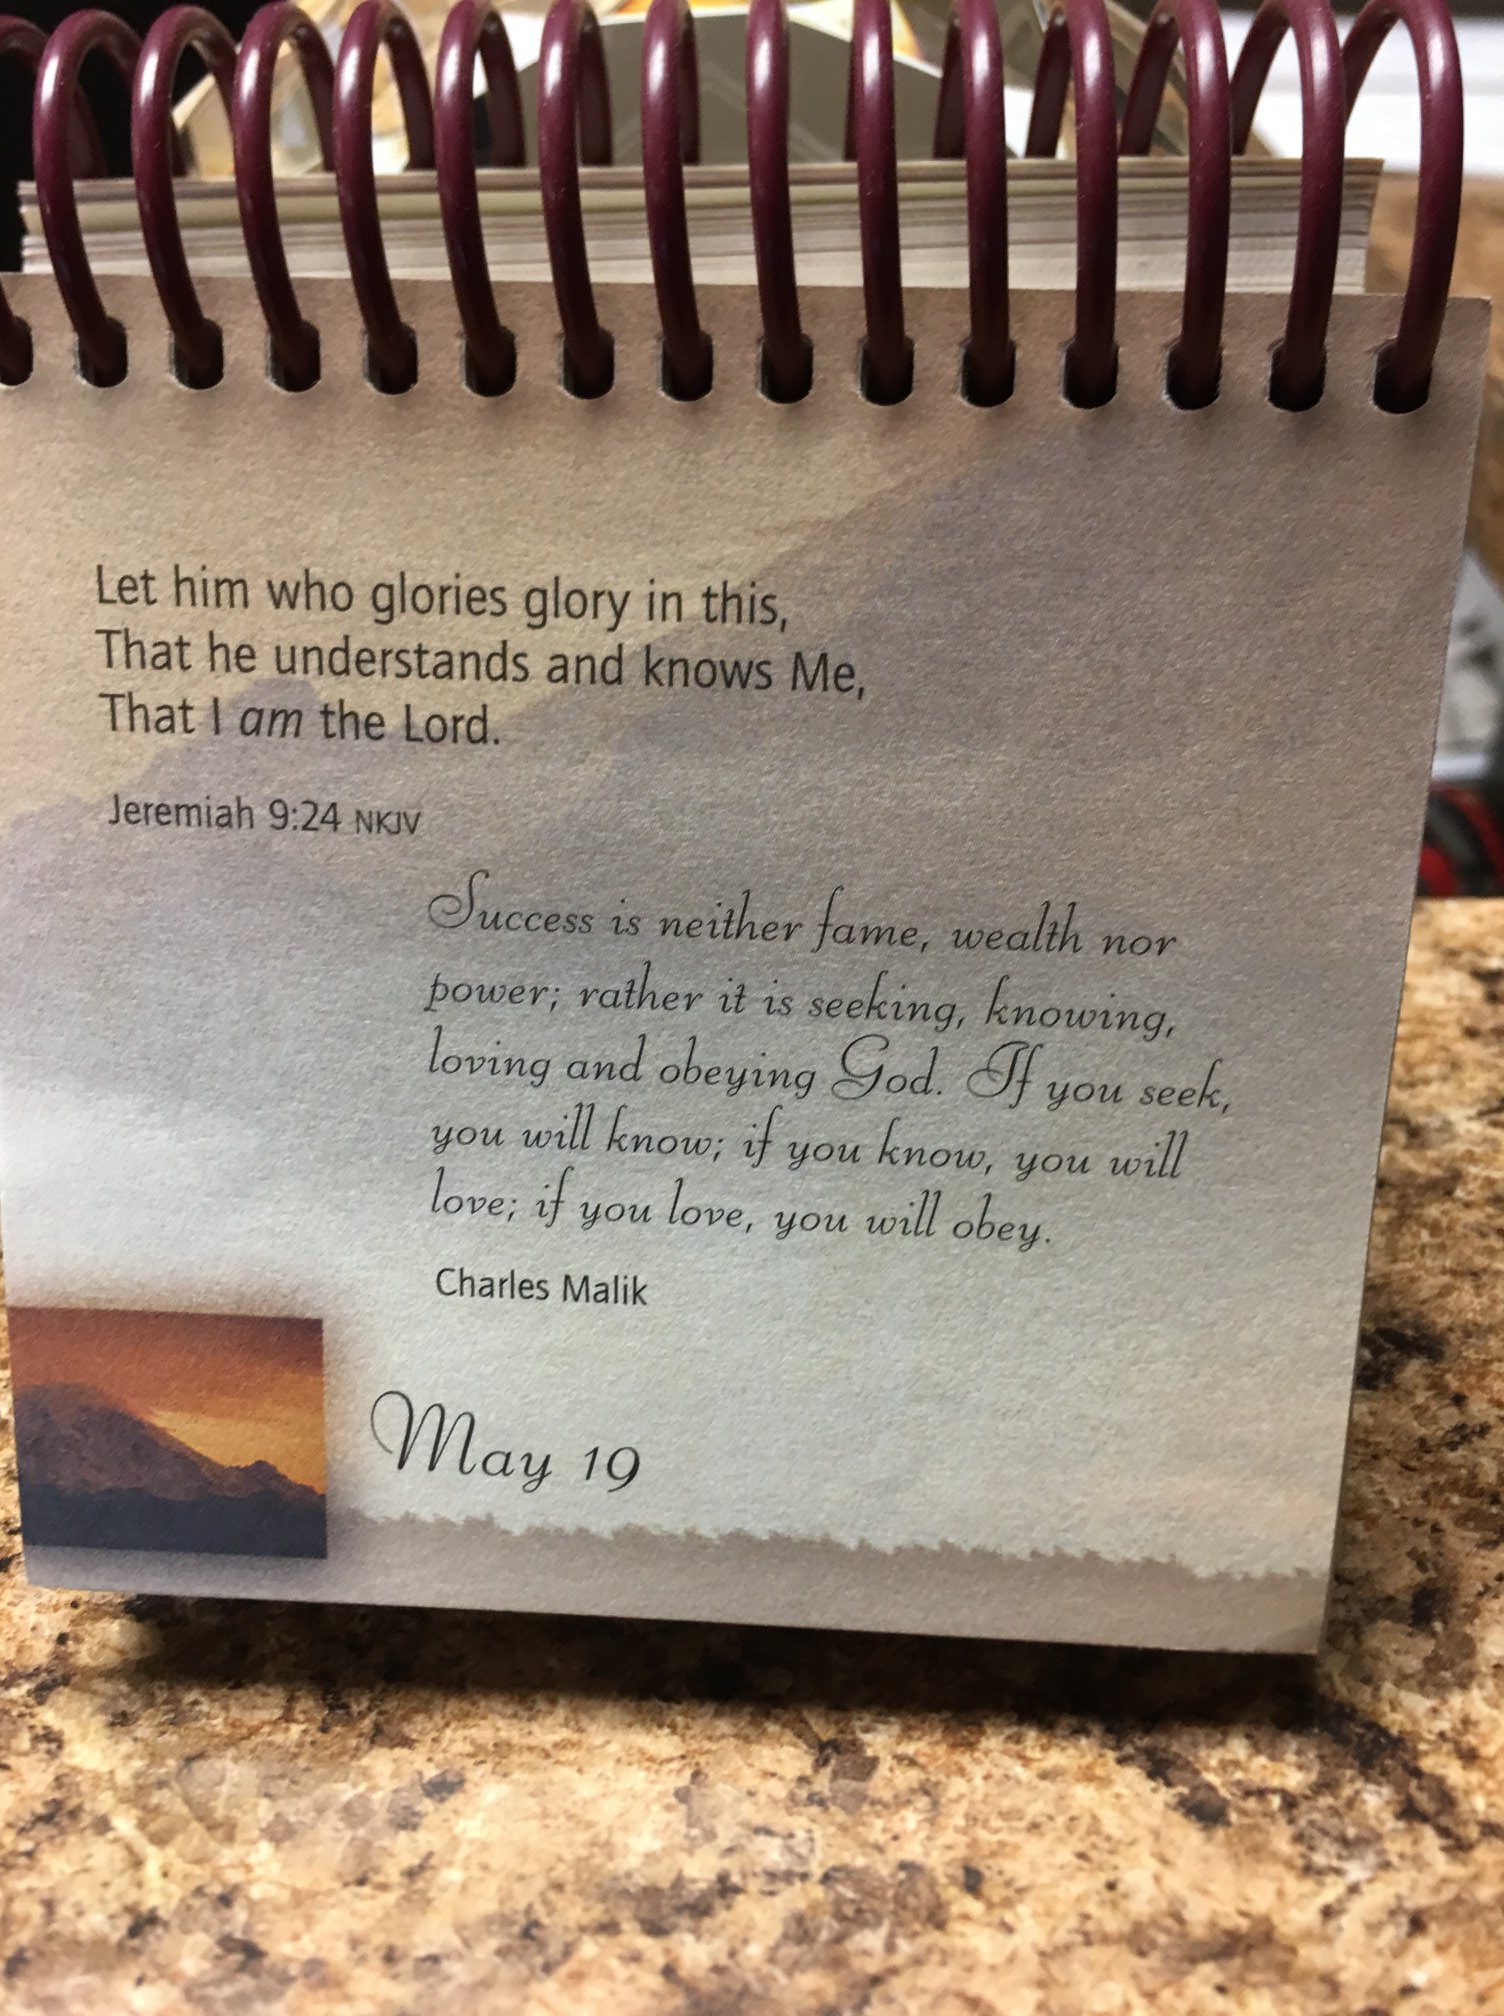 Let him who glories glory in this,
That he understands and knows Me,
That I am the Lord.
Jeremiah 9:24 NKJV
Success is neither fame, wealth nor
power; rather it is seeking, knowing,
loving and obeying God. If you seek,
you will know; if you know, you will
love; if you love, you will obey.
Charles Malik
May 19